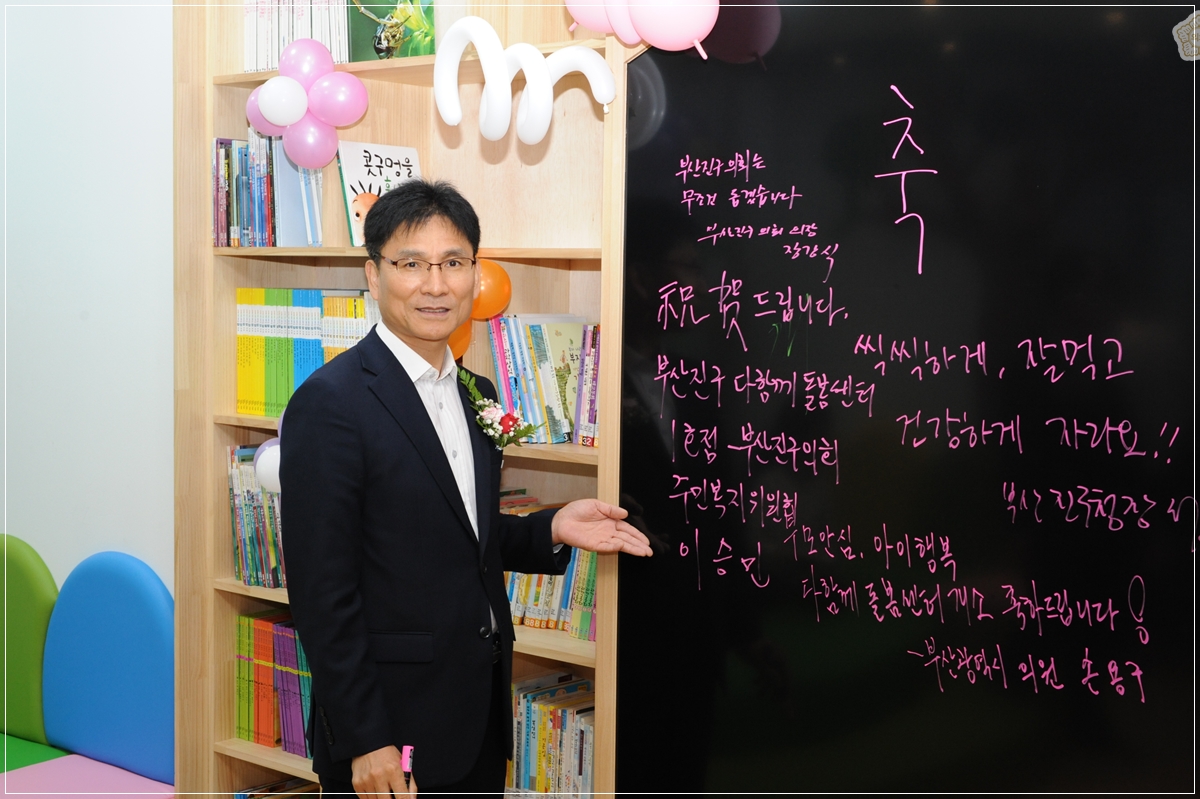 콧구멍을
축
부산진구의회는
무조건 돕겠습니다
부산진구 의회 의장
장강식
祝賀드립니다.
부산진구 다함께 돌봄센터
1호점 부산진구의회
주민복지위원
이승민
씩씩하게, 잘먹고
건강하게 자라요!!
부산진구청장 서
부모안심, 아이행복
다함께 돌봄센터 개소 축하드립니다
-부산광역시 의원 손용구
32